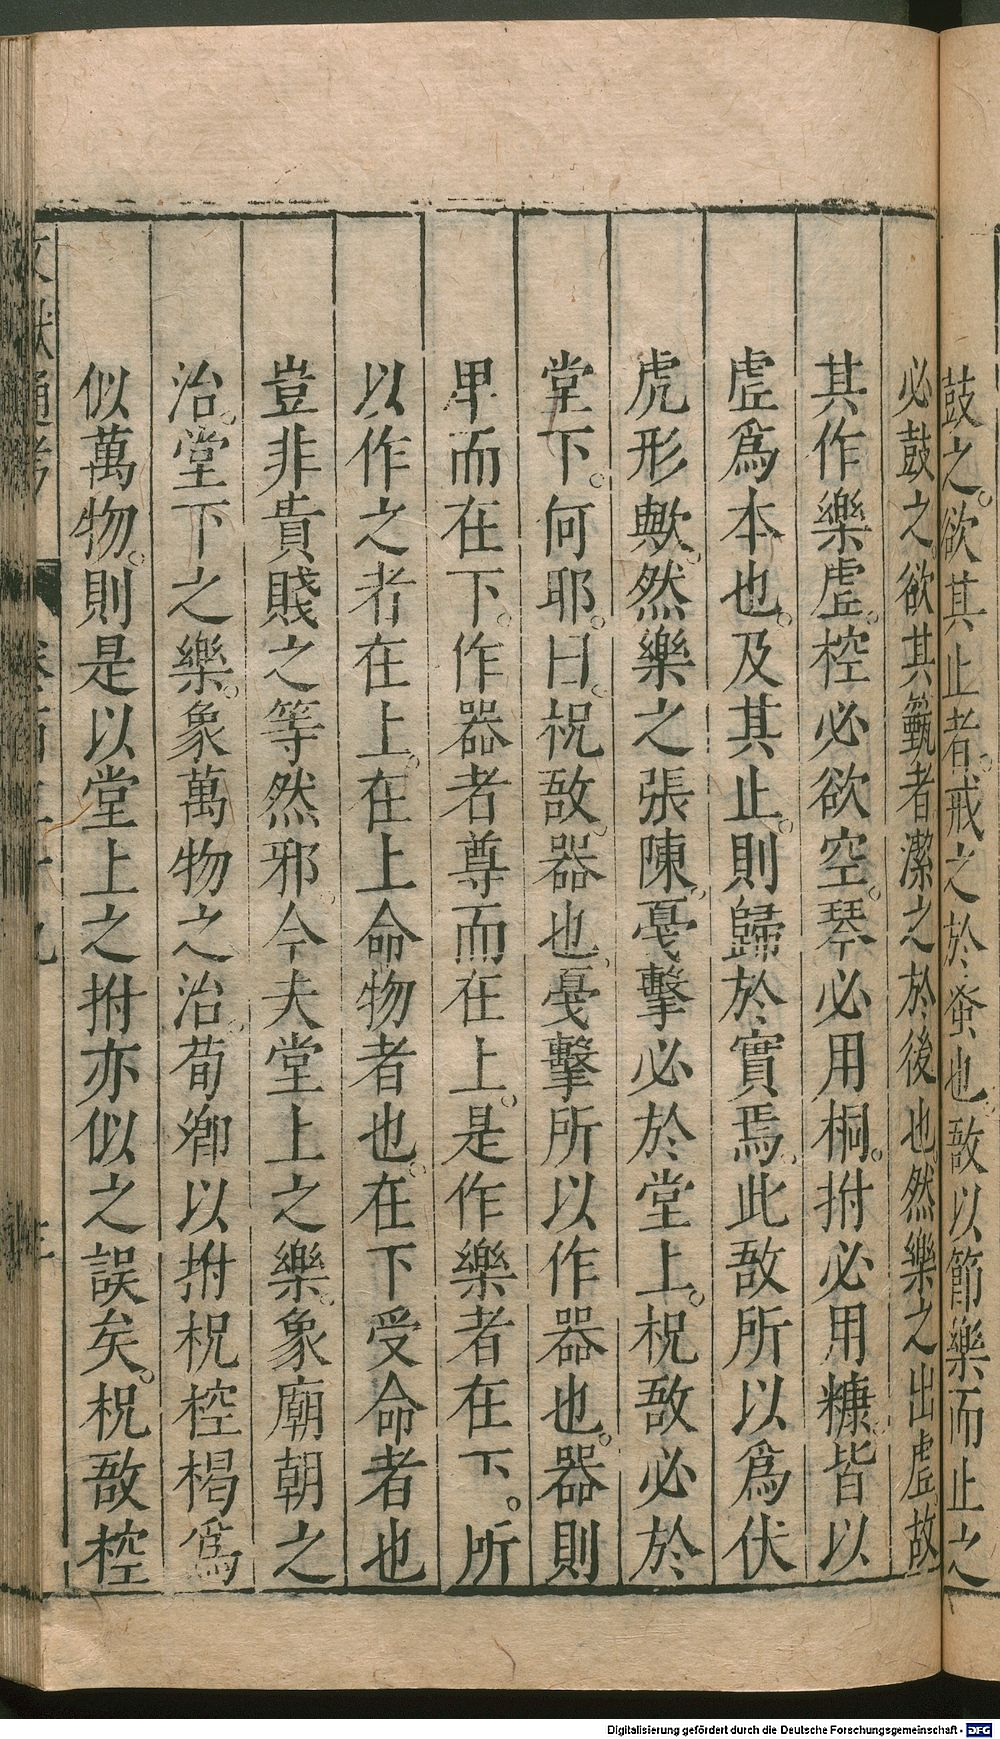 鼓之。欲其止者。戒之於蚤也。敔以節樂而止之
必鼓之。欲其籈者潔之於後也。然樂之出虗。故
其作樂虗。椌必欲空。琴必用桐。拊必用糠。皆以
虗爲本也。及其止。則歸於實焉。此敔所以爲伏
虎形歟。然樂之張陳。戞擊必於堂上。柷敔必於
堂下。何耶。曰。柷敔。器也。戞擊所以作器也。器則
卑而在下。作器者尊而在上。是作樂者在下。所
以作之者在上。在上命物者也。在下受命者也
豈非貴賤之等然邪。今夫堂上之樂。象廟朝之
治。堂下之樂。象萬物之治。荀卿以拊柷椌楬爲
似萬物。則是以堂上之拊亦似之誤矣。柷敔椌
文獻通考
Digitalisierung gefördert durch die Deutsche Forschungsgemeinschaft - DFG